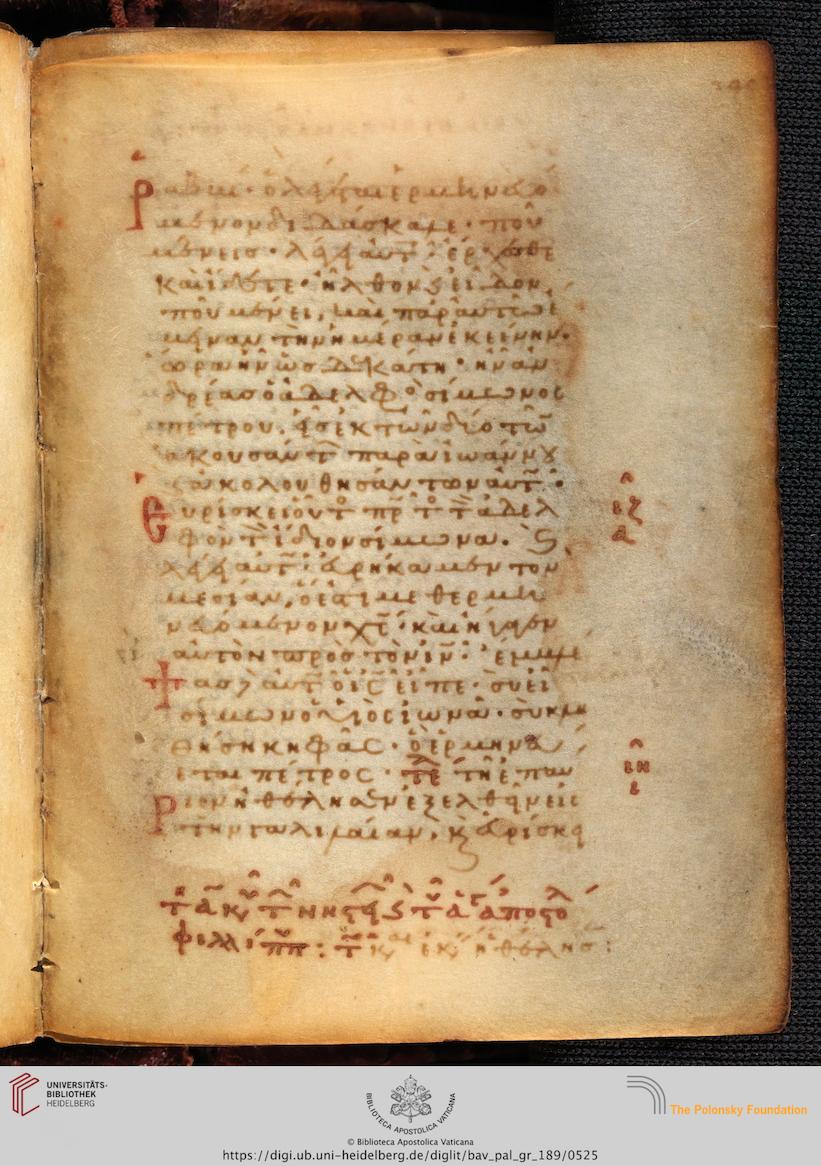 Ραββί· ὃ λέγεται ἑρμηνευό
μενον διδάσκαλε· ποῦ
μένεις· λέγει αὐτ· ἔρχεσθε
καὶ ἴδετε· ἦλθον ϗ εἶδον
ποῦ μένει, καὶ παρ αὐτῶ ἔ
μειναν τὴν ἡμέραν ἐκείνην·
ὥρα ἦν ὡς δεκάτη· ἦν ἀν
δρέας ὁ ἀδελφο σίμωνος
πέτρου. εἷς ἐκ τῶν δύο τῶ
ἀκουσάντ παρὰ ἰωάννου
ϗ ἀκολουθησάντων αὐτ·
Εὑρίσκει οὗτο πρ τ τ ἀδελ
φὸν τ ἴδιον σίμωνα. ϗ
λέγει αὐτ· εὑρήκαμεν τὸν
μεσίαν, ὅ ἐστι μεθερμη
νευόμενον χς· καὶ ἤγαγεν
αὐτὸν πρὸς τὸν ιν· ἐμβλέ
ψας αὐτ ὁ ις εἶπε· σὺ εἶ
σίμων ὁ υἱὸς ἰωνᾶ· σὺ κλη
θήσῃ κηφᾶς· ὃ ἑρμηνεύ
εται πέτρος· τε τῇ ἐπαύ
ριον ἠθέλησεν ἐξελθεῖν εἰς
τὴν γαλιλαίαν, ϗ εὑρίσκει
φιλίππ
UNIVERSITÄTS-
BIBLIOTHEK
HEIDELBERG
BIBLIOTHECA APOSTOLICA VATICANA
The Polonsky Foundation
© Biblioteca Apostolica Vaticana
https://digi.ub.uni-heidelberg.de/diglit/bav_pal_gr_189/0525